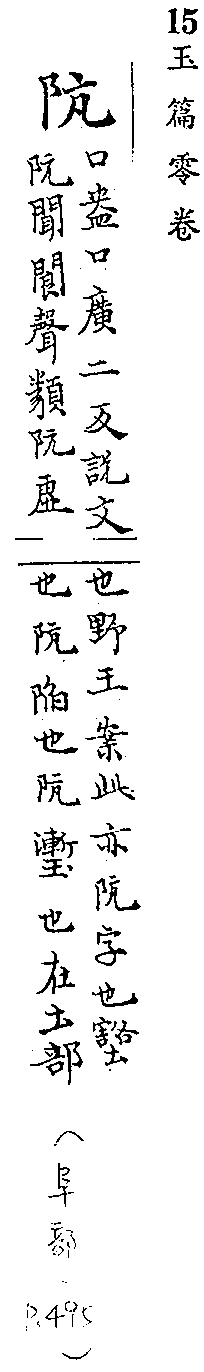 15玉篇零卷
阬
口盎口廣二反說文
阬閬聲類阬虛
也野王案此亦阬字也壑
也阬陷也阬壍也在土部
(阜部.P.495)